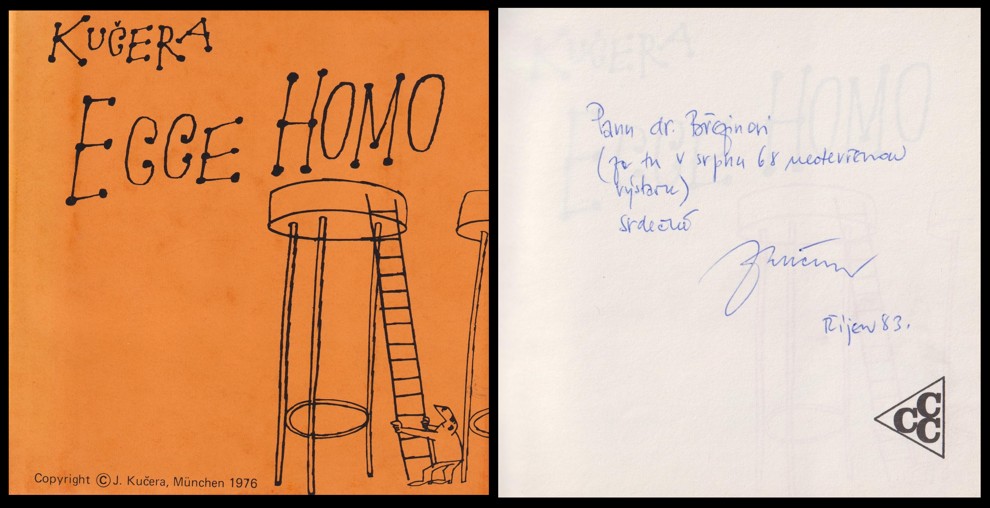 KUČERA
ECCE HOMO
Copyright © J. Kučera, München 1976
Panu dr. Břeginovi
(za tu v srpnu 68 neotevřenou
výstavu)
srdečně
JKučera
Říjen 83.
CCC